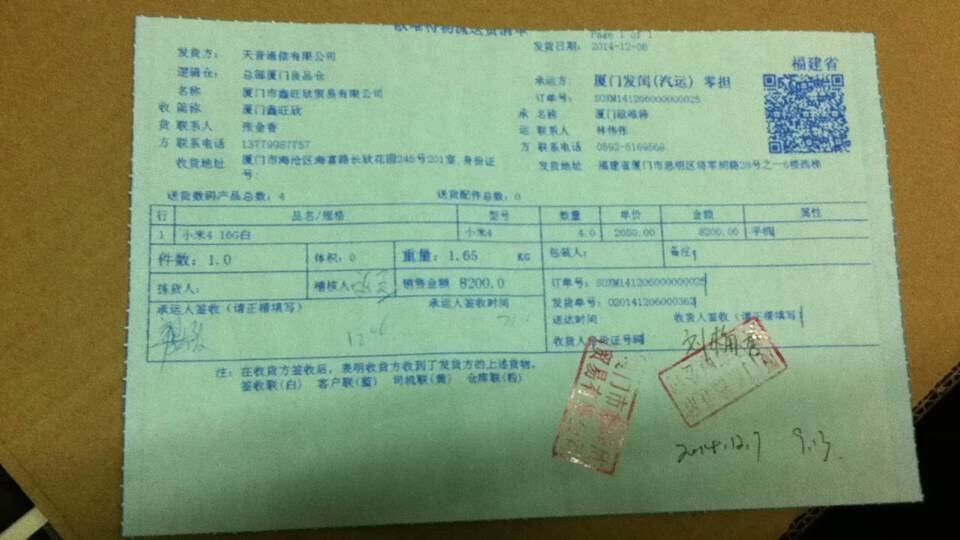 送货清单
Page 1 of 1
发货方： 天音通信有限公司 发货日期： 2014-12-06
福建省
逻辑仓： 总部厦门良品仓 承运方： 厦门发闽(汽运) 零担
名称 厦门市鑫旺欣贸易有限公司 订单号： SOXM141206000000025
收 简称 厦门鑫旺欣 承 名称 厦门欧唯特
货 联系人 张金香 运 联系人 林伟伟
方 联系电话 13779987757 方 联系电话 0592-5169568
收货地址 厦门市海沧区海富路长欣花园245号201室,身份证号: 发货地址 福建省厦门市思明区将军祠路28号之一6楼西梯
送货数码产品总数： 4 送货配件总数： 0
行 品名/规格 型号 数量 单价 金额 属性
1 小米4 16G白 小米4 4.0 2050.00 8200.00 平桐
件数： 1.0 体积： 0 重量： 1.65 KG 包装人： 备注
拣货人： 稽核人 销售金额 8200.0 订单号: SOXM141206000000025
承运人签收(请正楷填写) 承运人签收时间 发货单号: 020141206000362
送达时间 收货人签收（请正楷填写
收货人身份证号码
注： 在收货方签收后，表明收货方收到了发货方的上述货物。
签收联(白) 客户联(蓝) 司机联(黄) 仓库联(粉)
2014.12.7 9.13